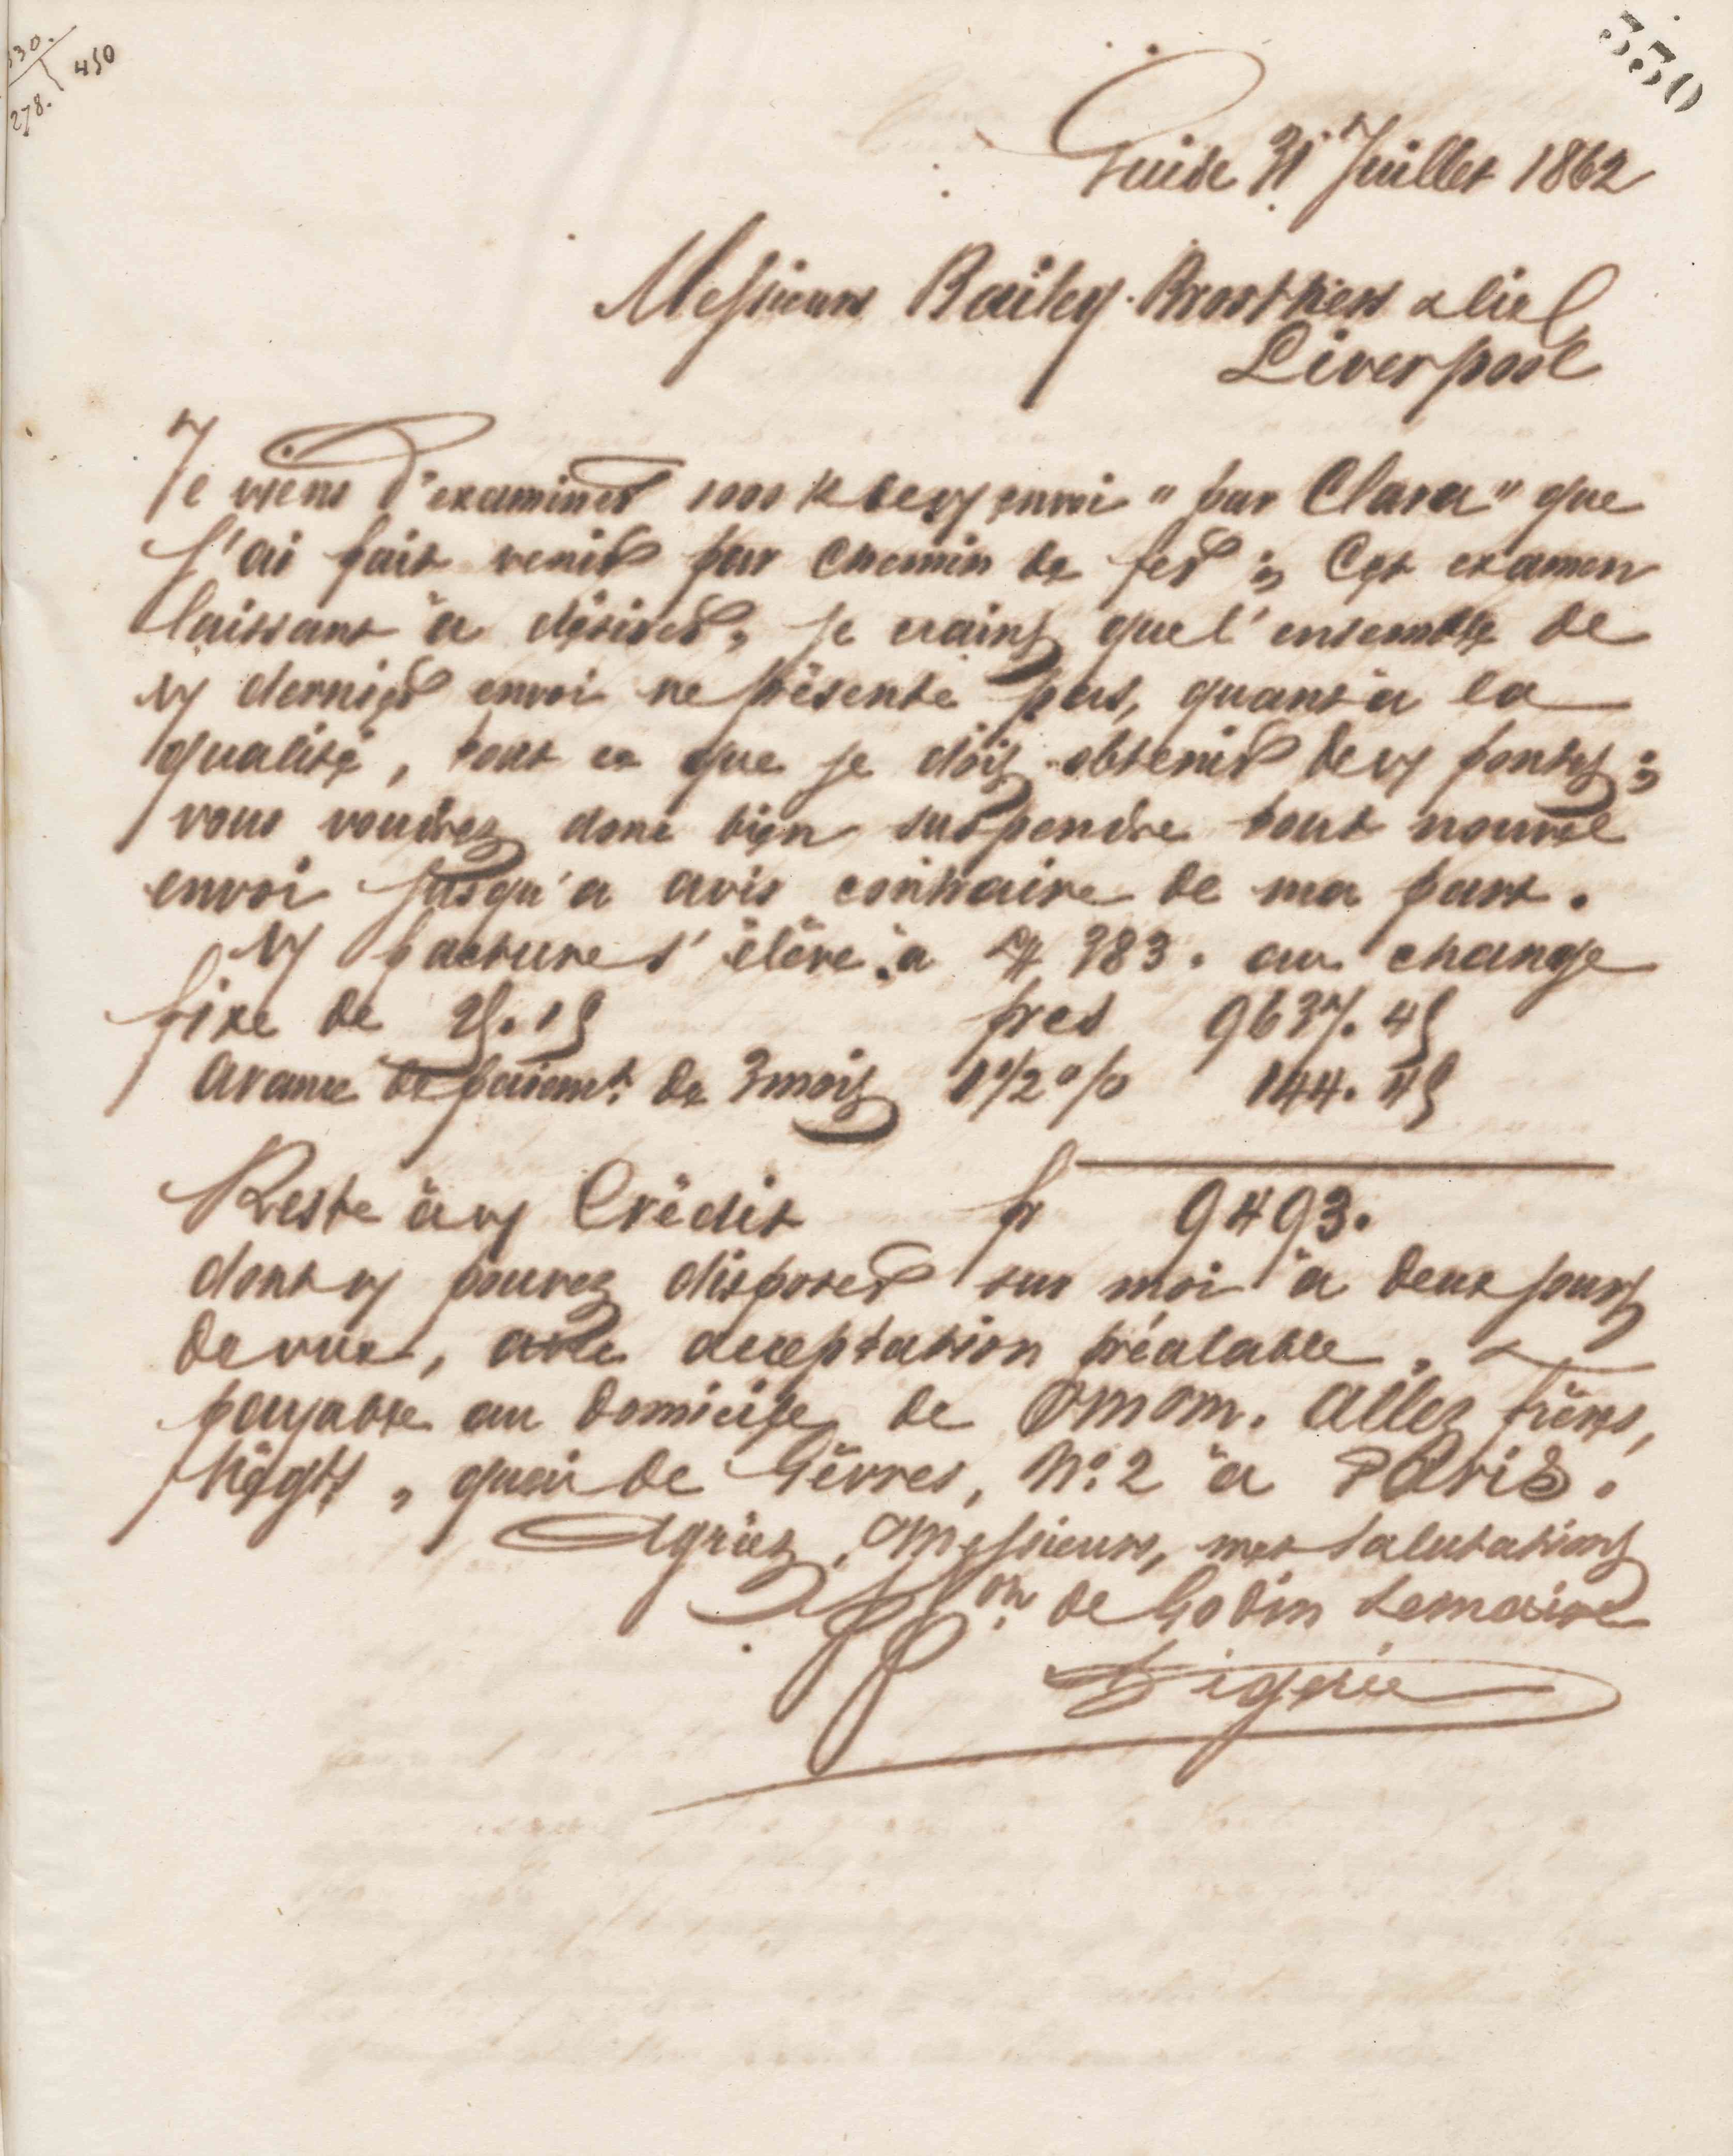 330.
450
278.
330
Guise 31 Juillet 1862
Messieurs Bailey Brosthers & Cie
Liverpool
Je viens d'examiner 1000 k de vs envoi " par Clara " que
j'ai fait venir par chemin de fer ; Cet examen
laissant à désirer, je crains que l'ensemble de
vs dernier envoi ne présente pas, quant à la
qualité, tout ce que je dois obtenir de vs fontes ;
vous voudrez donc bien suspendre tout nouvel
envoi jusqu'à avis contraire de ma part.
Vs facture s'élève à £ 383. au change
fixe de 25.15 frcs 9637.45
avance de paiemt. de 3 mois 1 1/2 % 144.45
Reste à vs Crédit fr 9493.
dont vs pouvez disposer sur moi à deux jours
de vue, avec acceptation préalable,
payable au domicile de MM. Allez frères,
Négts, quai de Gèvres, N° 2 à Paris.
Agréez, Messieurs, mes salutations
Pr on de Godin Lemaire